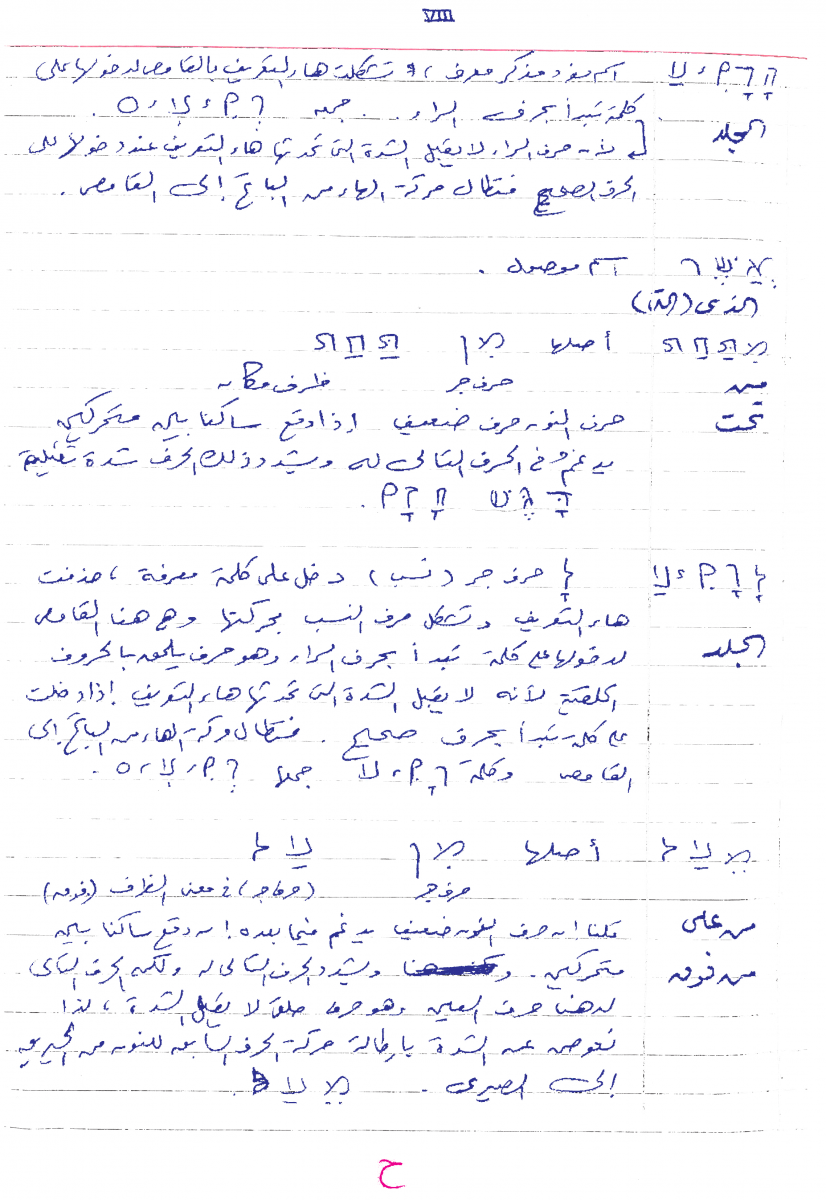 VIII
הָרָקִיעַ اسم مفرد مذكر معرف ، و تشكلت هاء التعريف بالقامص لدخولها على
الجلد كلمة تبدأ بحرف الراء . جمعه רְקִיעִים .
لأن حرف الراء لا يقبل الشدة التى تحدثها هاء التعريف عند دخولها على
الحرف الصحيح فتطال حركة الهاء من الباتح إلى القامص .
אֲשֶׁר اسم موصول .
الذى (التى)
מִתַּחַת أصلها מִן תַּחַת
من حرف جر ظرف مكان
تحت حرف النون حرف ضعيف إذا وقع ساكنا بين متحركين
يدغم فى الحرف التالى له ويشدد ذلك الحرف شدة ثقيلة
דָּגֵשׁ חָזָק .
לָרָקִיעַ לְ حرف جر (نسب) دخل على كلمة معرفة ، حذفت
هاء التعريف وتشكل حرف النسب بحركتها وهى هنا القامص
الجلد لدخولها على كلمة تبدأ بحرف الراء وهو حرف يلحق بالحروف
الحلقية لأنه لا يقبل الشدة التى تحدثها هاء التعريف إذا دخلت
على كلمة تبدأ بحرف صحيح . فتطال حركة الهاء من الباتح إلى
القامص وكلمة רָקִיעַ جمعها רְקִיעִים .
מֵעַל أصلها מִן עַל
حرف جر (حرف جر) فى معنى الظرف (فوق)
من على قلنا ان حرف النون ضعيف يدغم فيما بعده إن وقع ساكنا بين
من فوق متحركين . ويشدد الحرف التالى له ولكن الحرف التالى
له هنا حرف العين وهو حرف حلقى لا يقبل الشدة ، لذا
نعوض عن الشدة بإطالة حركة الحرف السابق للنون من الحيريق
إلى الصيرى . מֵעַל .
ح